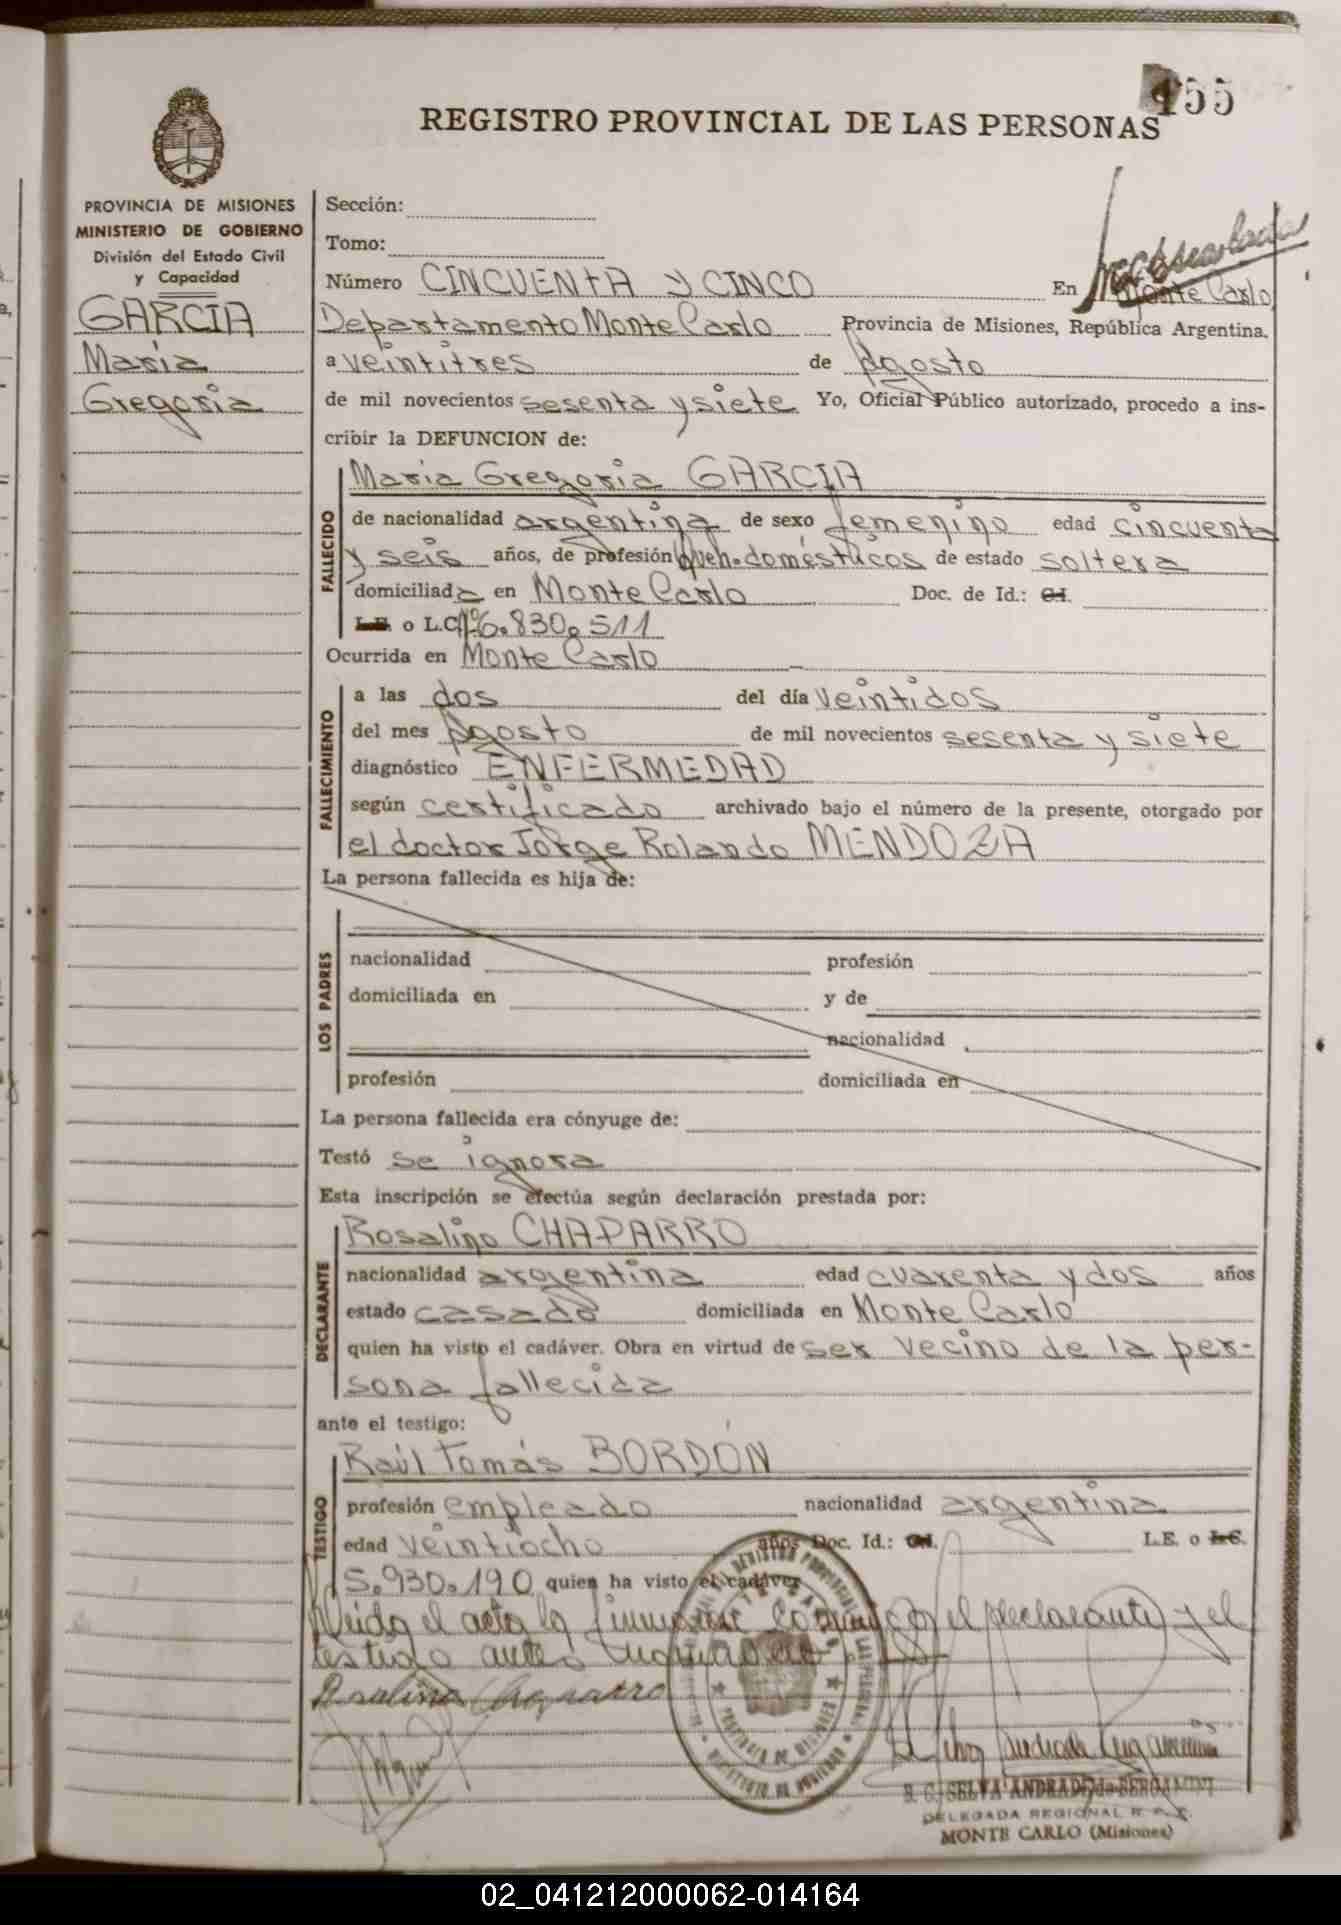 155
REGISTRO PROVINCIAL DE LAS PERSONAS
PROVINCIA DE MISIONES
MINISTERIO DE GOBIERNO
División del Estado Civil
y Capacidad
GARCIA
Maria
Gregoria
Sección:
Tomo:
Número CINCUENTA y CINCO En Monte Carlo
Departamento Monte Carlo Provincia de Misiones, República Argentina,
a veintitres de Agosto
de mil novecientos sesenta y siete Yo, Oficial Público autorizado, procedo a ins-
cribir la DEFUNCION de:
FALLECIDO
Maria Gregoria GARCIA
de nacionalidad argentina de sexo femenino edad cincuenta
y seis años, de profesión Queh. domésticos de estado soltera
domiciliada en Monte Carlo Doc. de Id.: C.I.
L.E. o L.C. Nº 6.830.511
Ocurrida en Monte Carlo
FALLECIMIENTO
a las dos del día veintidos
del mes Agosto de mil novecientos sesenta y siete
diagnóstico ENFERMEDAD
según certificado archivado bajo el número de la presente, otorgado por
el doctor Jorge Rolando MENDOZA
La persona fallecida es hija de:
LOS PADRES
nacionalidad profesión
domiciliada en y de
nacionalidad
profesión domiciliada en
La persona fallecida era cónyuge de:
Testó se ignora
Esta inscripción se efectúa según declaración prestada por:
DECLARANTE
Rosalino CHAPARRO
nacionalidad argentina edad cuarenta y dos años
estado casado domiciliada en Monte Carlo
quien ha visto el cadáver. Obra en virtud de ser vecino de la per-
sona fallecida
ante el testigo:
TESTIGO
Raúl Tomás BORDÓN
profesión empleado nacionalidad argentina
edad veintiocho años Doc. Id.: C.I. L.E. o L.C.
5.930.190 quien ha visto el cadáver
Leida el acta la firman conmigo el declarante y el
testigo antes
Rosalino Chaparro
PROVINCIA DE MISIONES
S. C. SELVA ANDRADE de BERGAMINI
DELEGADA REGIONAL R. P. P.
MONTE CARLO (Misiones)
02_041212000062-014164